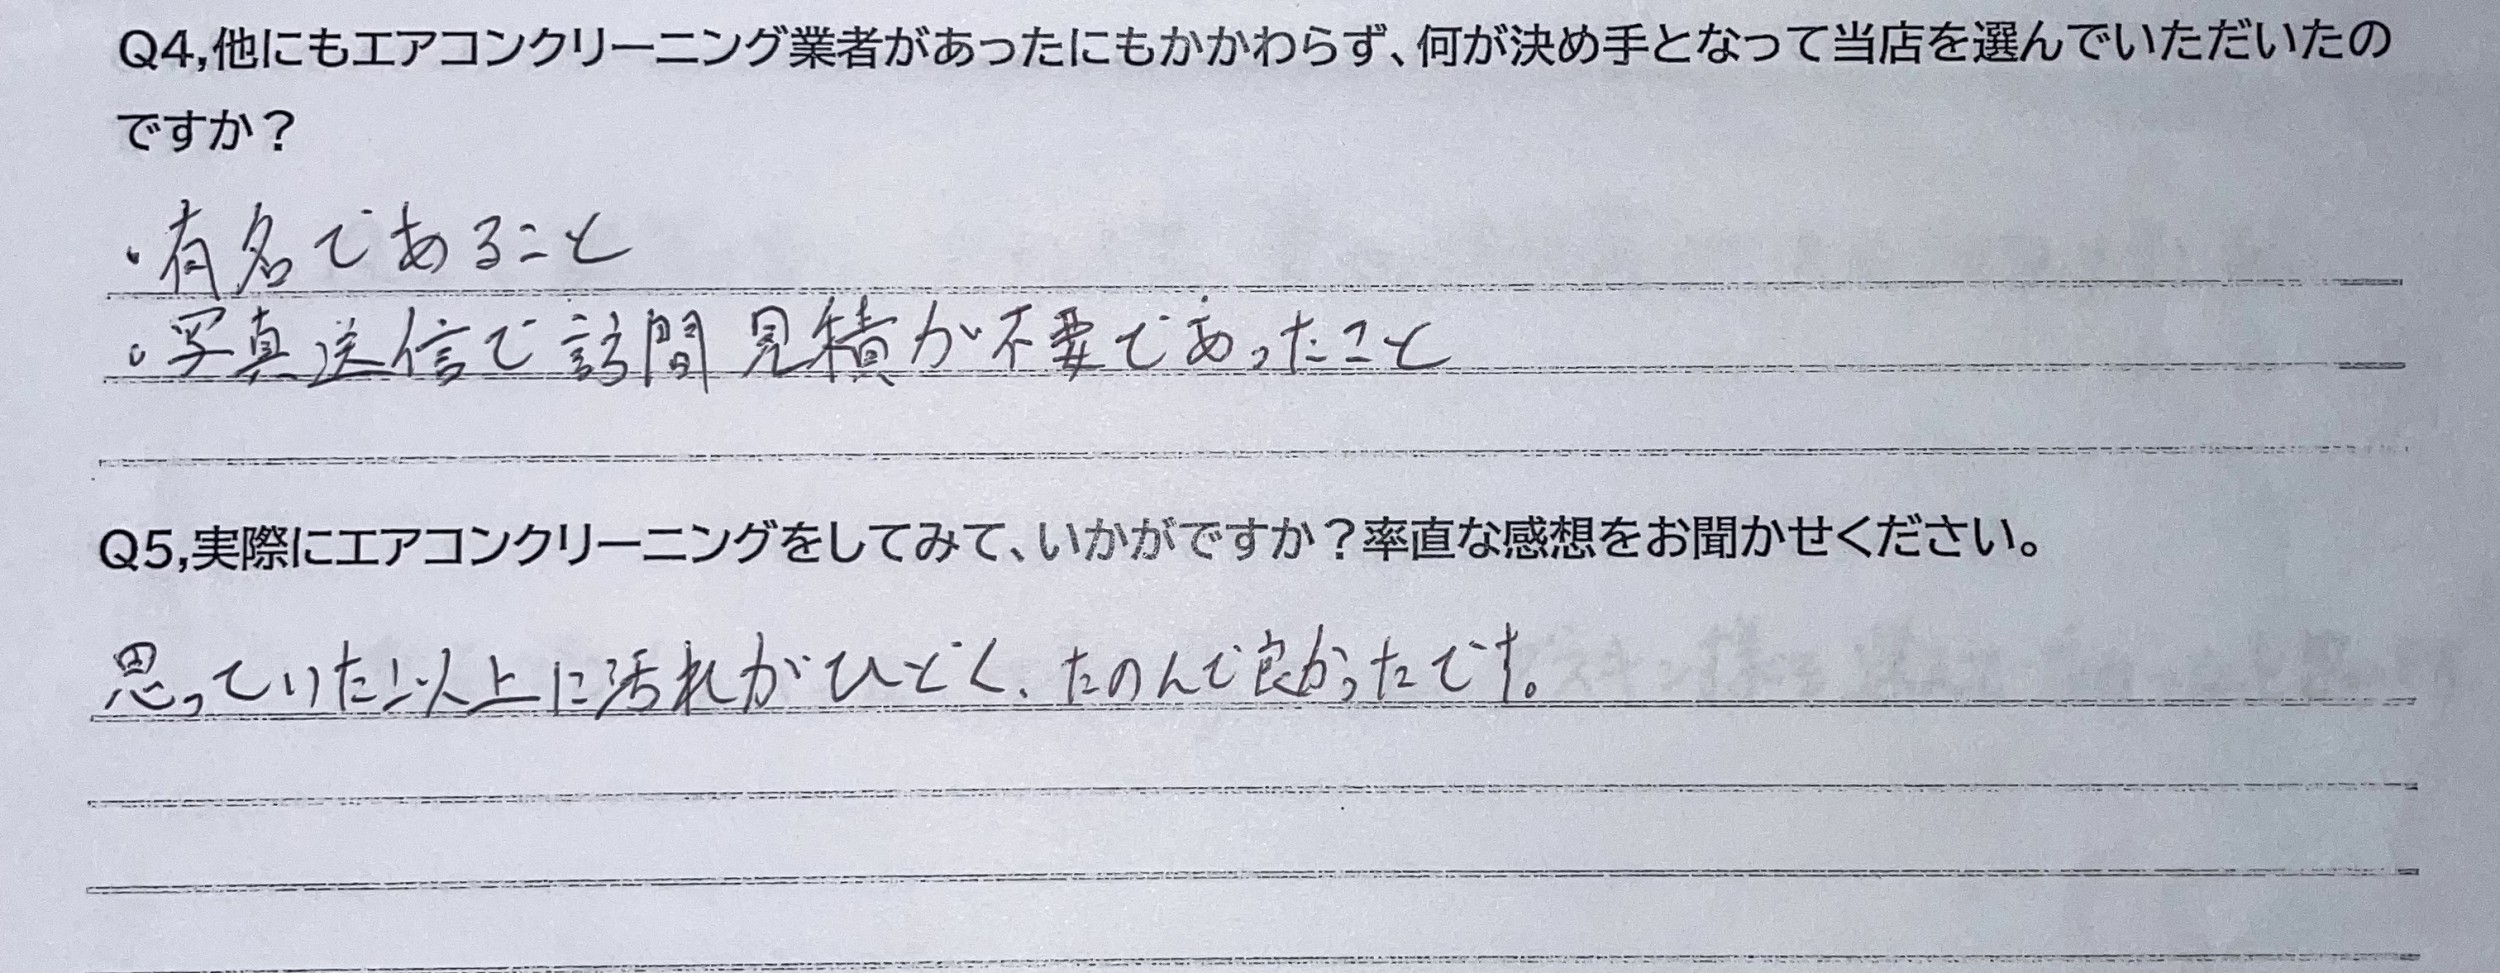 Q4,他にもエアコンクリーニング業者があったにもかかわらず、何が決め手となって当店を選んでいただいたの
ですか？
・有名であること
・写真送信で訪問見積が不要であったこと
Q5,実際にエアコンクリーニングをしてみて、いかがですか？率直な感想をお聞かせください。
思っていた以上に汚れがひどく、たのんで良かったです。